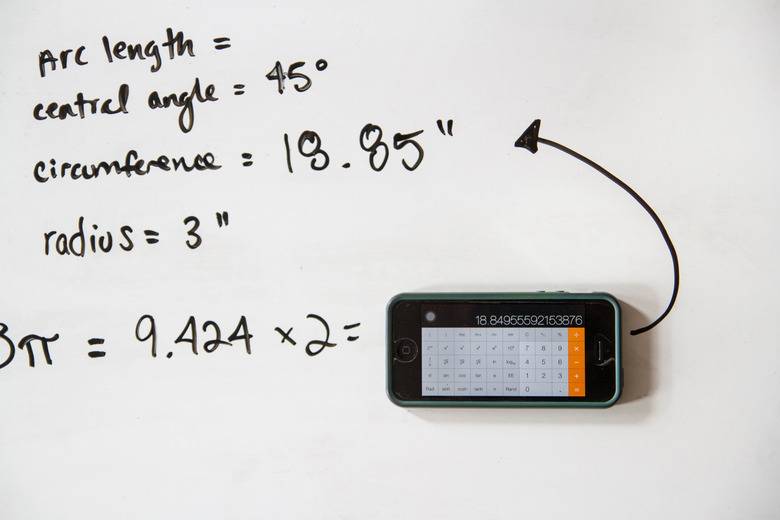 Arc length =
central angle = 45°
circumference = 18.85"
radius = 3"
3π = 9.424 × 2 =
18.84955592153876
7 8 9 ×
4 5 6 −
1 2 3 +
Rad sinh cosh tanh π Rand 0 . =